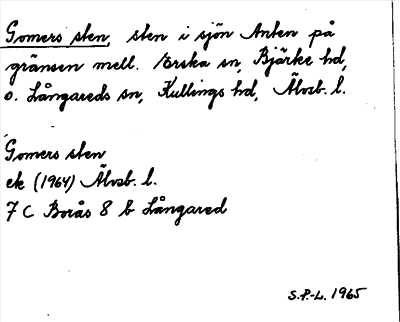 Gomers sten, sten i sjön Anten på
gränsen mell. Erska sn, Bjärke hd,
o. Långareds sn, Kullings hd, Älvsb. l.
Gomers sten
ek (1964) Älvsb. l.
7 C Borås 8 b Långared
S.P.-L. 1965